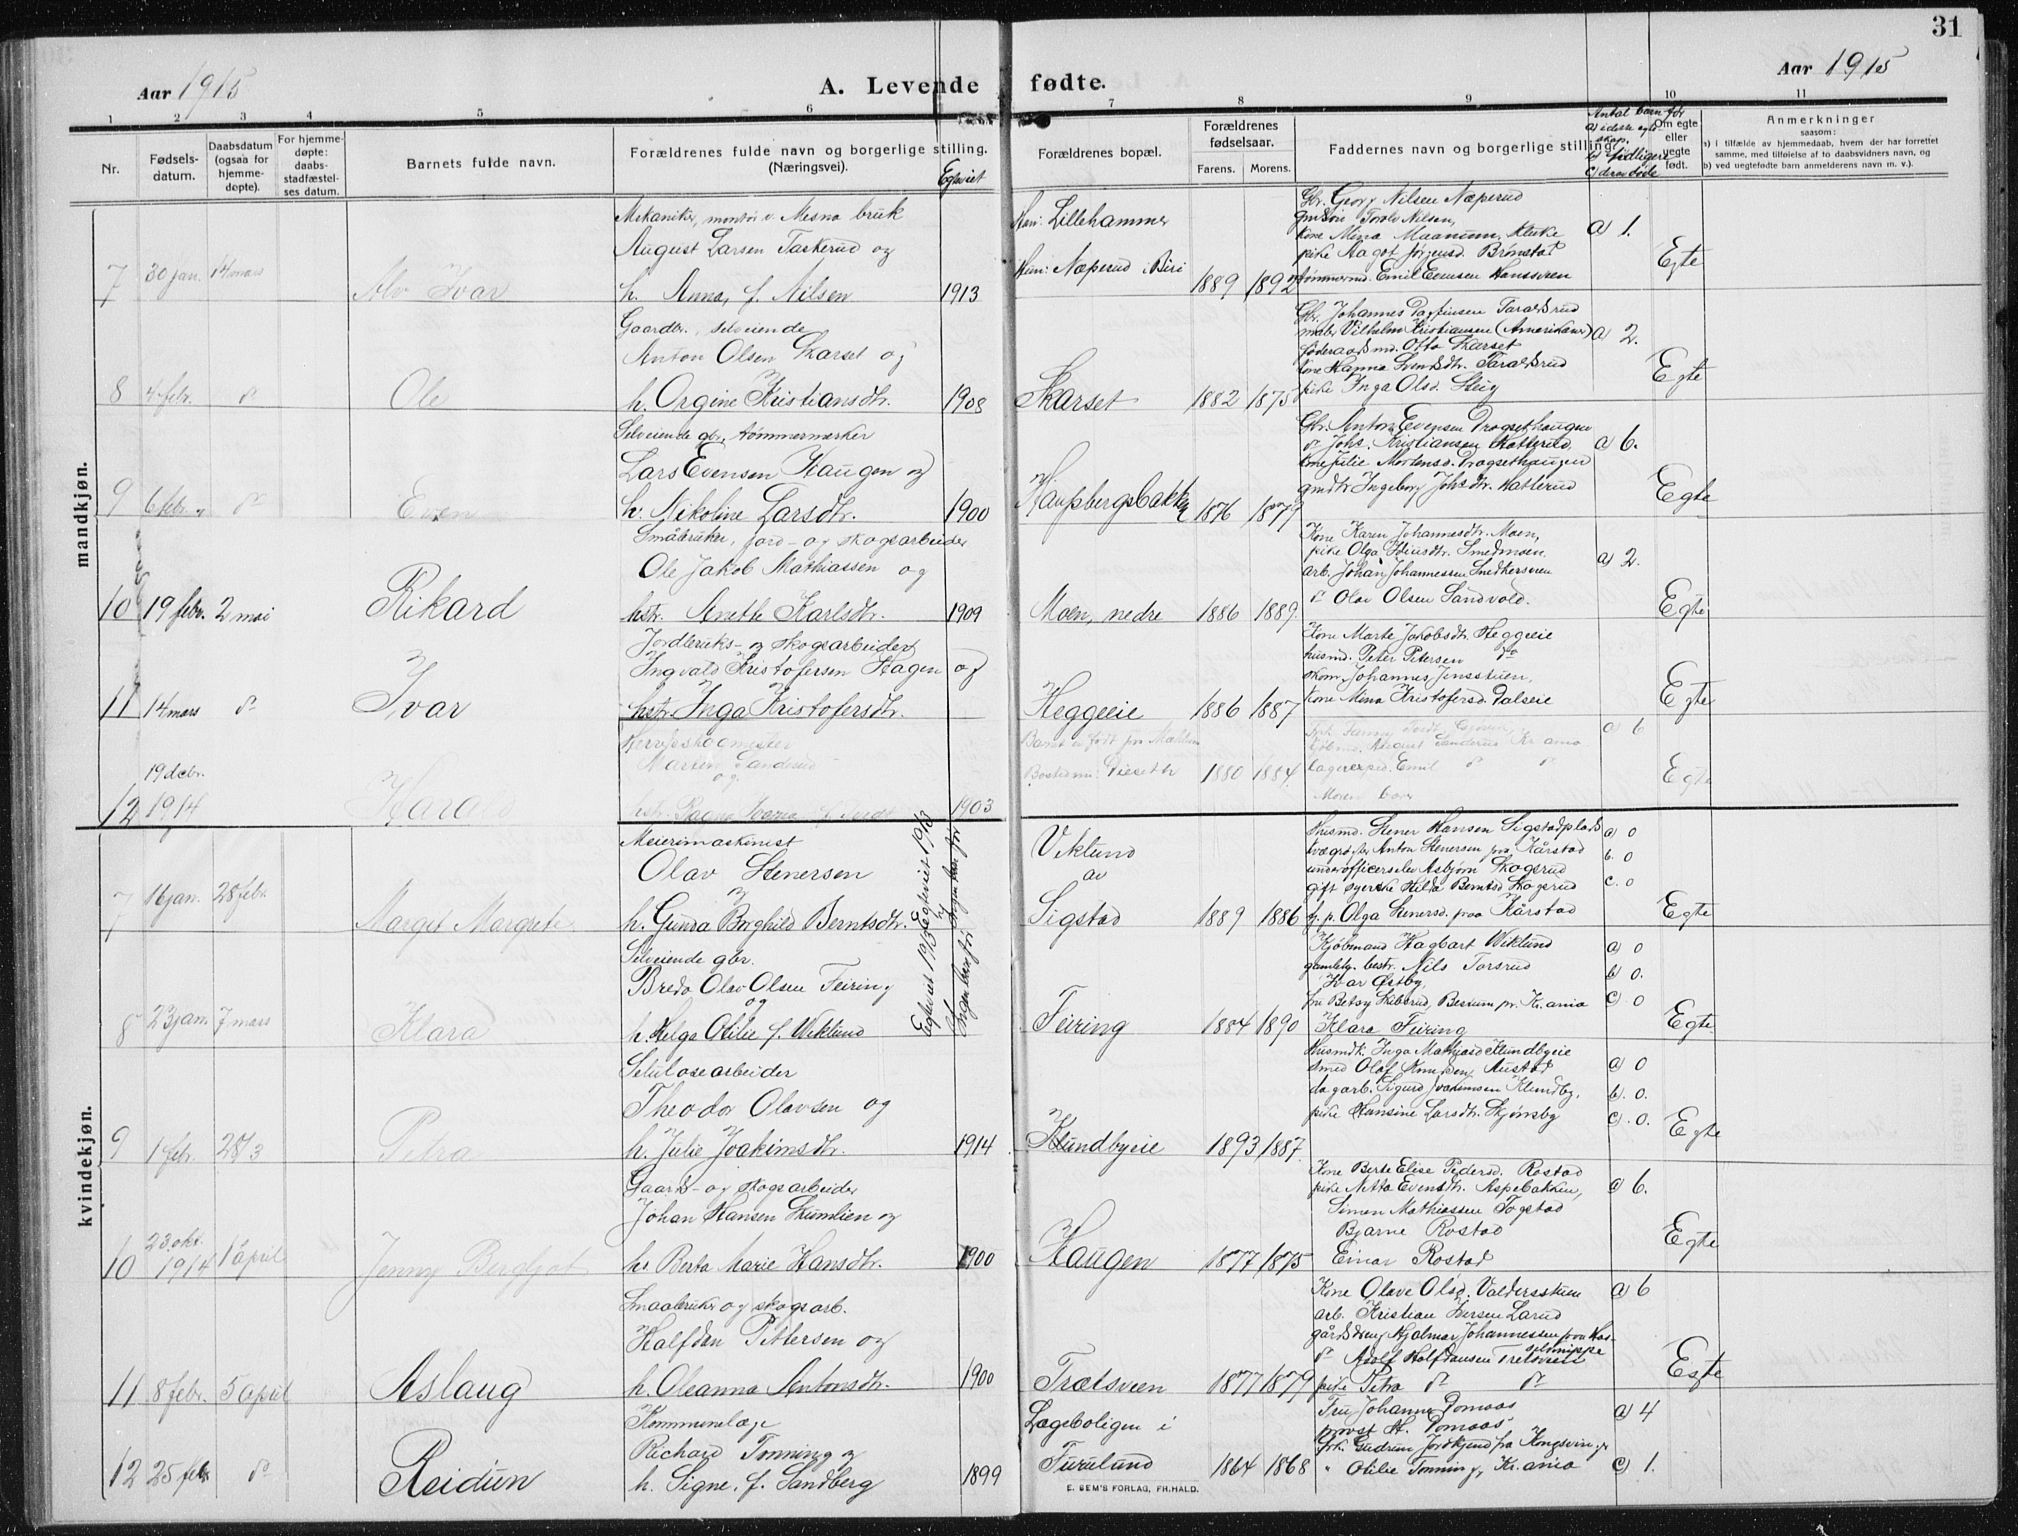 31
Aar 1915
A. Levende fødte.
Aar 1915
1 2 3 4 5 6 7 8 9 10 11
Nr.
Fødsels-
datum.
Daabsdatum
(ogsaa for
hjemme-
døpte).
For hjemme-
døpte:
daabs-
stadfæstel-
ses datum.
Barnets fulde navn.
Forældrenes fulde navn og borgerlige stilling.
(Næringsvei).
Egteviet
Forældrenes bopæl.
Forældrenes
fødselsaar.
Farens. Morens.
Faddernes navn og borgerlige stilling.
Antal barn før
a) i dette egte-
skap.
b) tidligere
c) derav døde
Om egte
eller
uegte
født.
Anmerkninger
saasom:
a) i tilfælde av hjemmedaab, hvem der har forrettet
samme, med tilføielse af to daabsvidners navn, og
b) ved uegtefødte barn anmelderens navn m. v.).
mandkjøn.
7 30 jan. 14 mars Alv Ivar
Mekaniker, montør v. Mesna bruk
August Larsen Taskerud og
h. Anna, f. Nilsen 1913
Han: Lillehammer
Hun: Næperud i Biri 1889 1892
Gbr. Georg Nilsen Næperud
gmdsøn Torolv Nilsen,
kone Mina Maanum, Kluke
pike Aagot Jørgensd. Brønstad
tømmermd. Emil Evensen Hansveen
a) 1. Egte
8 4 febr. do Ole
Gaardbr., selveiende
Anton Olsen Skarset og
h. Orgine Kristiansdtr. 1908
Skarset 1882 1875
Gbr. Johannes Dagfinsen Taraldsrud
maler Vilhelm Kristiansen (Amerikaner)
føderaadsmd. Otto Skarset
kone Hanna Svendsdtr. Taraldsrud
pike Inga Olsd. Stuy
a) 2. Egte
9 6 febr. do Even
Selveiende gbr., tømmermerker
Lars Evensen Haugen og
h. Nikoline Larsdtr. 1900
Haugsbergsbakken 1876 1879
Gbr. Anton Evensen Dragsethaugen
do Johs. Kristiansen Hatterud,
kone Julie Mortensd. Dragsethaugen
gmdtr Ingeborg Johsdtr. Hatterud
a) 6. Egte
10 19 febr. 2 mai Rikard
Småbruker, jord- og skogsarbeider
Ole Jakob Mathiassen og
hstr. Anette Karlsdtr. 1909
Moen, nedre 1886 1889.
Kone Karen Johannesdtr. Moen,
pike Olga Steinsdtr. Smedmoen
arb. Johan Johannessen Snedkersveen
do Olav Olsen Sandvold.
a) 2. Egte
11 14 mars do Ivar
Jordbruks- og skogsarbeider
Ingvald Kristofersen Hagen og
hstr. Inga Kristofersdtr.
Heggeeie 1886 1887
Kone Marte Jakobsdtr. Heggeeie
husmd. Peter Petersen do
skom. Johannes Jensstuen,
kone Mina Kristofersd. Dalseie
Egte
12 19 debr. 1914 Harald
Herredsskogmester
Marten Sanderud
og
1903
Barnet er født paa Mæhlum
1880 1884.
a) 6 Egte
kvindekjøn.
7 16 jan. 28 febr. Margit Margrete
Meierimaskinist
Olav Stenersen
og
h. Gunda Borghild Berntsdtr.
Egteviet 1913
Ingen barn før
Viklund
av
Sigstad 1889 1886
Husmd. Stener Hansen Sigstadplads
kvægrøgter Anton Stenersen paa Kårstad
underofficerselev Asbjørn Skogsrud
gift syerske Hilda Berntsd Skogsrud
g. p. Olga Stenersd. paa Kårstad
a) 0
b. 0
c. 0
Egte
8 23 jan. 7 mars Klara
Selveiende gbr.
Bredo Olav Olsen Feiring
og
h. Helga Otilie f. Wiklund
Egteviet 1913
Ingen barn før
Feiring 1884 1890
Kjøbmand Hagbart Wiklund
gamleby. bestr. Nils Torsrud
Ivar Østby,
fru Betsy Skiberud, Bestum pr. Kr.ania
Klara Feiring
a) 0
b) 0.
c) 0
Egte
9 1 febr. 28/3 Petra
Selulosearbeider
Theodor Olavsen og
h. Julie Joakimsdtr. 1914
Klundbyeie 1893 1887.
Husmdk. Inga Mathiasd Klundbyeie
smed Olaf Knudsen, Austad
dagarb. Sigurd Joakimsen Klundby,
pike Hansine Larsdtr. Skjønsby
a) 0
b. 0.
c). 0.
Egte
10 23 okt. 1914 1 april Jenny Bergljot
Gaards- og skogsarbeider
Johan Hansen Skumlien og
h. Berta Marie Hansdtr. 1900
Haugen 1877 1875
Kone Berte Elise Pedersd. Rostad
pike Netta Evensdtr. Aspebakken,
Simen Mathiassen Fogstad
Bjarne Rostad
Einar Rostad
a) 6. Egte
11 8 febr. 5 april Aslaug
Smaabruker og skogsarb.
Halfdan Pettersen og
h. Oleanna Antonsdtr. 1900
Trætsveen 1877 1879
Kone Olave Olsd. Valdersstuen
arb. Kristian Iversen Larud
gårdsdreng Hjalmar Johannessen paa Has-
selknippe
do Adolf Halfdansen Tretsveen
pike Petra do do
a) 6 Egte
12 25 febr. do Reidun
Kommunelæge
Richard Tønning og
h. Signe, f. Sandberg 1899
Lægeboligen i
Furulund 1864 1868
Fru Johanne Domaas
provst H. Domaas
frk. Gudrun Jordkjend fra Kongsvinger
" Otilie Tønning, Kr.ania
a) 4
c) 1.
E. SEM'S FORLAG, FR.HALD.